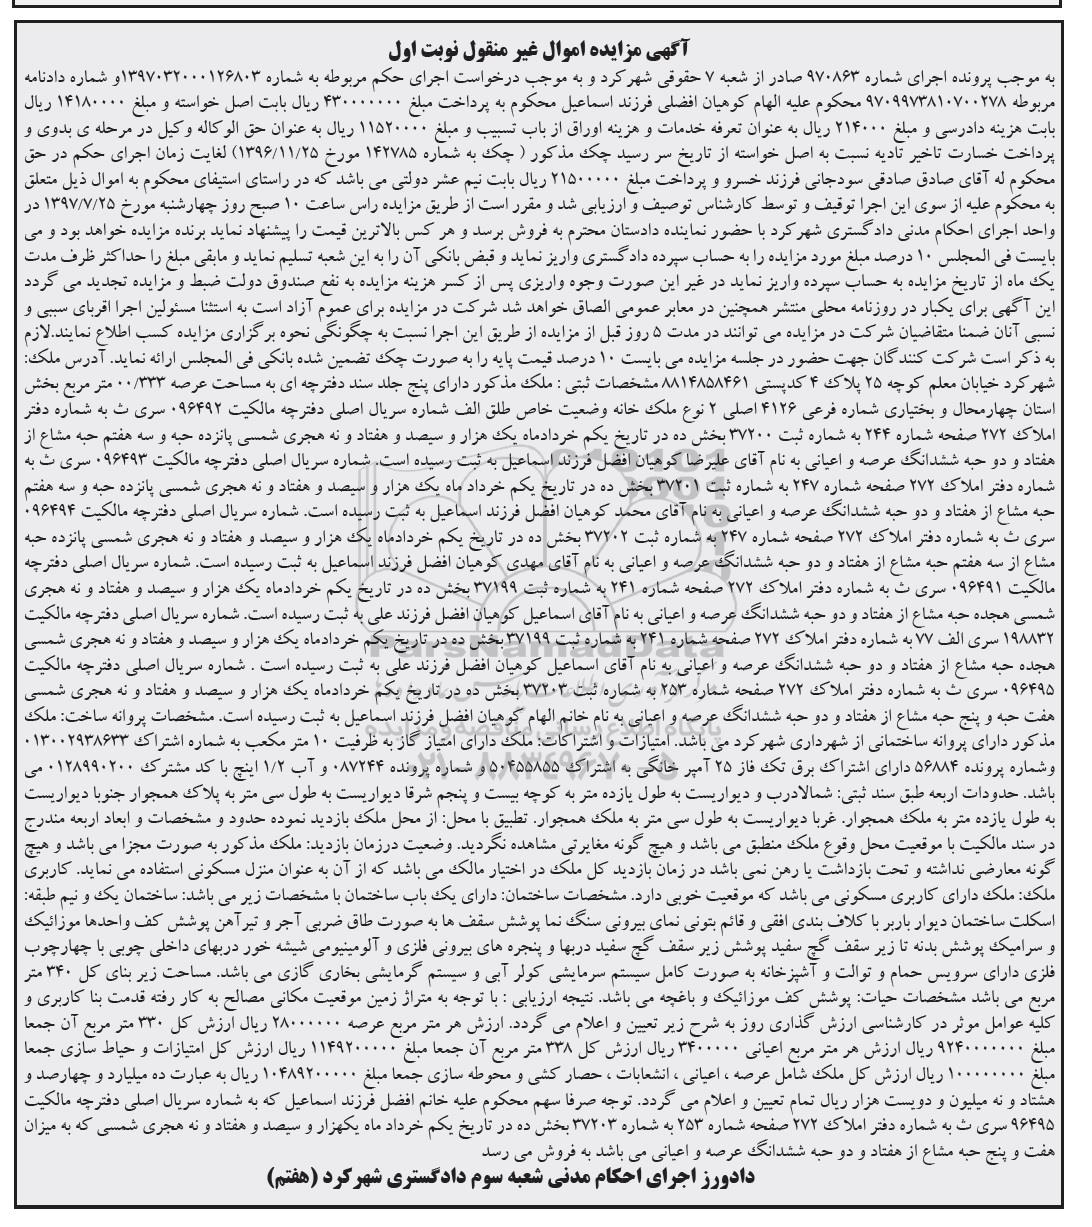 آگهی مزایده اموال غیر منقول نوبت اول
به موجب پرونده اجرای شماره ۹۷۰۸۶۳ صادر از شعبه ۷ حقوقی شهرکرد و به موجب درخواست اجرای حکم مربوطه به شماره ۱۳۹۷۰۳۲۰۰۰۱۲۶۸۰۳و شماره دادنامه
مربوطه ۹۷۰۹۹۷۳۸۱۰۷۰۰۲۷۸ محکوم علیه الهام کوهیان افضلی فرزند اسماعیل محکوم به پرداخت مبلغ ۴۳۰۰۰۰۰۰۰ ریال بابت اصل خواسته و مبلغ ۱۴۱۸۰۰۰۰ ریال
بابت هزینه دادرسی و مبلغ ۲۱۴۰۰۰ ریال به عنوان تعرفه خدمات و هزینه اوراق از باب تسبیب و مبلغ ۱۱۵۲۰۰۰۰ ریال به عنوان حق الوکاله وکیل در مرحله ی بدوی و
پرداخت خسارت تاخیر تادیه نسبت به اصل خواسته از تاریخ سر رسید چک مذکور ( چک به شماره ۱۴۲۷۸۵ مورخ ۱۳۹۶/۱۱/۲۵) لغایت زمان اجرای حکم در حق
محکوم له آقای صادق صادقی سودجانی فرزند خسرو و پرداخت مبلغ ۲۱۵۰۰۰۰۰ ریال بابت نیم عشر دولتی می باشد که در راستای استیفای محکوم به اموال ذیل متعلق
به محکوم علیه از سوی این اجرا توقیف و توسط کارشناس توصیف و ارزیابی شد و مقرر است از طریق مزایده راس ساعت ۱۰ صبح روز چهارشنبه مورخ ۱۳۹۷/۷/۲۵ در
واحد اجرای احکام مدنی دادگستری شهرکرد با حضور نماینده دادستان محترم به فروش برسد و هر کس بالاترین قیمت را پیشنهاد نماید برنده مزایده خواهد بود و می
بایست فی المجلس ۱۰ درصد مبلغ مورد مزایده را به حساب سپرده دادگستری واریز نماید و قبض بانکی آن را به این شعبه تسلیم نماید و مابقی مبلغ را حداکثر ظرف مدت
یک ماه از تاریخ مزایده به حساب سپرده واریز نماید در غیر این صورت وجوه واریزی پس از کسر هزینه مزایده به نفع صندوق دولت ضبط و مزایده تجدید می گردد
این آگهی برای یکبار در روزنامه محلی منتشر همچنین در معابر عمومی الصاق خواهد شد شرکت در مزایده برای عموم آزاد است به استثنا مسئولین اجرا اقربای سببی و
نسبی آنان ضمنا متقاضیان شرکت در مزایده می توانند در مدت ۵ روز قبل از مزایده از طریق این اجرا نسبت به چگونگی نحوه برگزاری مزایده کسب اطلاع نمایند.لازم
به ذکر است شرکت کنندگان جهت حضور در جلسه مزایده می بایست ۱۰ درصد قیمت پایه را به صورت چک تضمین شده بانکی فی المجلس ارائه نماید. آدرس ملک:
شهرکرد خیابان معلم کوچه ۲۵ پلاک ۴ کدپستی ۸۸۱۴۸۵۸۴۶۱ مشخصات ثبتی : ملک مذکور دارای پنج جلد سند دفترچه ای به مساحت عرصه ۰۰/۳۳۳ متر مربع بخش
استان چهارمحال و بختیاری شماره فرعی ۴۱۲۶ اصلی ۲ نوع ملک خانه وضعیت خاص طلق الف شماره سریال اصلی دفترچه مالکیت ۰۹۶۴۹۲ سری ث به شماره دفتر
املاک ۲۷۲ صفحه شماره ۲۴۴ به شماره ثبت ۳۷۲۰۰ بخش ده در تاریخ یکم خردادماه یک هزار و سیصد و هفتاد و نه هجری شمسی پانزده حبه و سه هفتم حبه مشاع از
هفتاد و دو حبه ششدانگ عرصه و اعیانی به نام آقای علیرضا کوهیان افضل فرزند اسماعیل به ثبت رسیده است. شماره سریال اصلی دفترچه مالکیت ۰۹۶۴۹۳ سری ث به
شماره دفتر املاک ۲۷۲ صفحه شماره ۲۴۷ به شماره ثبت ۳۷۲۰۱ بخش ده در تاریخ یکم خرداد ماه یک هزار و سیصد و هفتاد و نه هجری شمسی پانزده حبه و سه هفتم
حبه مشاع از هفتاد و دو حبه ششدانگ عرصه و اعیانی به نام آقای محمد کوهیان افضل فرزند اسماعیل به ثبت رسیده است. شماره سریال اصلی دفترچه مالکیت ۰۹۶۴۹۴
سری ث به شماره دفتر املاک ۲۷۲ صفحه شماره ۲۴۷ به شماره ثبت ۳۷۲۰۲ بخش ده در تاریخ یکم خردادماه یک هزار و سیصد و هفتاد و نه هجری شمسی پانزده حبه
مشاع از سه هفتم حبه مشاع از هفتاد و دو حبه ششدانگ عرصه و اعیانی به نام آقای مهدی کوهیان افضل فرزند اسماعیل به ثبت رسیده است. شماره سریال اصلی دفترچه
مالکیت ۰۹۶۴۹۱ سری ث به شماره دفتر املاک ۲۷۲ صفحه شماره ۲۴۱ به شماره ثبت ۳۷۱۹۹ بخش ده در تاریخ یکم خردادماه یک هزار و سیصد و هفتاد و نه هجری
شمسی هجده حبه مشاع از هفتاد و دو حبه ششدانگ عرصه و اعیانی به نام آقای اسماعیل کوهیان افضل فرزند علی به ثبت رسیده است. شماره سریال اصلی دفترچه مالکیت
۱۹۸۸۳۲ سری الف ۷۷ به شماره دفتر املاک ۲۷۲ صفحه شماره ۲۴۱ به شماره ثبت ۳۷۱۹۹ بخش ده در تاریخ یکم خردادماه یک هزار و سیصد و هفتاد و نه هجری شمسی
هجده حبه مشاع از هفتاد و دو حبه ششدانگ عرصه و اعیانی به نام آقای اسماعیل کوهیان افضل فرزند علی به ثبت رسیده است . شماره سریال اصلی دفترچه مالکیت
۰۹۶۴۹۵ سری ث به شماره دفتر املاک ۲۷۲ صفحه شماره ۲۵۳ به شماره ثبت ۳۷۲۰۳ بخش ده در تاریخ یکم خردادماه یک هزار و سیصد و هفتاد و نه هجری شمسی
هفت حبه و پنج حبه مشاع از هفتاد و دو حبه ششدانگ عرصه و اعیانی به نام خانم الهام کوهیان افضل فرزند اسماعیل به ثبت رسیده است. مشخصات پروانه ساخت: ملک
مذکور دارای پروانه ساختمانی از شهرداری شهرکرد می باشد. امتیازات و اشتراکات: ملک دارای امتیاز گاز به ظرفیت ۱۰ متر مکعب به شماره اشتراک ۰۱۳۰۰۲۹۳۸۶۳۳
وشماره پرونده ۵۶۸۸۴ دارای اشتراک برق تک فاز ۲۵ آمپر خانگی به اشتراک ۵۰۴۵۵۸۵۵ و شماره پرونده ۰۸۷۲۴۴ و آب ۱/۲ اینچ با کد مشترک ۰۱۲۸۹۹۰۲۰۰ می
باشد. حدودات اربعه طبق سند ثبتی: شمالادرب و دیواریست به طول یازده متر به کوچه بیست و پنجم شرقا دیواریست به طول سی متر به پلاک همجوار جنوبا دیواریست
به طول یازده متر به ملک همجوار. غربا دیواریست به طول سی متر به ملک همجوار. تطبیق با محل: از محل ملک بازدید نموده حدود و مشخصات و ابعاد اربعه مندرج
در سند مالکیت با موقعیت محل وقوع ملک منطبق می باشد و هیچ گونه مغایرتی مشاهده نگردید. وضعیت درزمان بازدید: ملک مذکور به صورت مجزا می باشد و هیچ
گونه معارضی نداشته و تحت بازداشت یا رهن نمی باشد در زمان بازدید کل ملک در اختیار مالک می باشد که از آن به عنوان منزل مسکونی استفاده می نماید. کاربری
ملک: ملک دارای کاربری مسکونی می باشد که موقعیت خوبی دارد. مشخصات ساختمان: دارای یک باب ساختمان با مشخصات زیر می باشد: ساختمان یک و نیم طبقه:
اسکلت ساختمان دیوار باربر با کلاف بندی افقی و قائم بتونی نمای بیرونی سنگ نما پوشش سقف ها به صورت طاق ضربی آجر و تیرآهن پوشش کف واحدها موزائیک
و سرامیک پوشش بدنه تا زیر سقف گچ سفید پوشش زیر سقف گچ سفید دربها و پنجره های بیرونی فلزی و آلومینیومی شیشه خور دربهای داخلی چوبی با چهارچوب
فلزی دارای سرویس حمام و توالت و آشپزخانه به صورت کامل سیستم سرمایشی کولر آبی و سیستم گرمایشی بخاری گازی می باشد. مساحت زیر بنای کل ۳۴۰ متر
مربع می باشد مشخصات حیات: پوشش کف موزائیک و باغچه می باشد. نتیجه ارزیابی : با توجه به متراژ زمین موقعیت مکانی مصالح به کار رفته قدمت بنا کاربری و
کلیه عوامل موثر در کارشناسی ارزش گذاری روز به شرح زیر تعیین و اعلام می گردد. ارزش هر متر مربع عرصه ۲۸۰۰۰۰۰۰ ریال ارزش کل ۳۳۰ متر مربع آن جمعا
مبلغ ۹۲۴۰۰۰۰۰۰۰ ریال ارزش هر متر مربع اعیانی ۳۴۰۰۰۰۰ ریال ارزش کل ۳۳۸ متر مربع آن جمعا مبلغ ۱۱۴۹۲۰۰۰۰۰ ریال ارزش کل امتیازات و حیاط سازی جمعا
مبلغ ۱۰۰۰۰۰۰۰۰ ریال ارزش کل ملک شامل عرصه ، اعیانی ، انشعابات ، حصار کشی و محوطه سازی جمعا مبلغ ۱۰۴۸۹۲۰۰۰۰۰ ریال به عبارت ده میلیارد و چهارصد و
هشتاد و نه میلیون و دویست هزار ریال تمام تعیین و اعلام می گردد. توجه صرفا سهم محکوم علیه خانم افضل فرزند اسماعیل که به شماره سریال اصلی دفترچه مالکیت
۹۶۴۹۵ سری ث به شماره دفتر املاک ۲۷۲ صفحه شماره ۲۵۳ به شماره ۳۷۲۰۳ بخش ده در تاریخ یکم خرداد ماه یکهزار و سیصد و هفتاد و نه هجری شمسی که به میزان
هفت و پنج حبه مشاع از هفتاد و دو حبه ششدانگ عرصه و اعیانی می باشد به فروش می رسد
دادورز اجرای احکام مدنی شعبه سوم دادگستری شهرکرد (هفتم)
ParsNamadData
پایگاه اطلاع رسانی مناقصه و مزایده